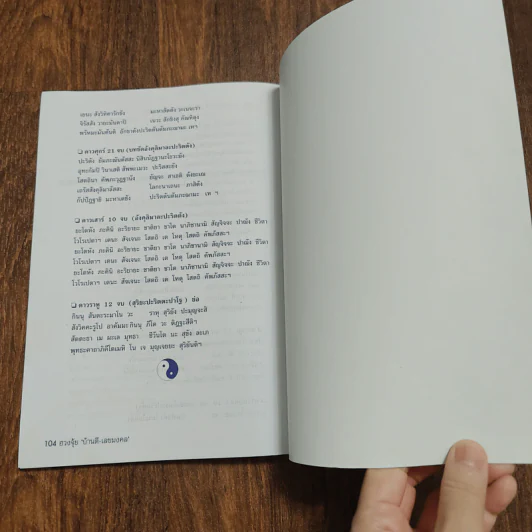 ❏ ดาวศุกร์ 21 จบ (บทขัดอังคุลิมาละปะริตตัง)
ปะริตัง ยัมภะณันตัสสะ นิสินนัฏฐานะโธวะนัง
อุทะกัมปิ วินาเสติ สัพพะเมวะ ปะริสสะยัง
โสตถินา คัพภะวุฏฐานัง ยัญจะ สาเธติ ตังขะเณ
เถรัสสังคุลิมาลัสสะ โลกะนาเถนะ ภาสิตัง
กัปปัฏฐายิ มะหาเตชัง ปะริตตันตัมภะณามะ เห ฯ
❏ ดาวเสาร์ 10 จบ (อังคุลิมาละปะริตตัง)
ยะโตหัง ภะคินิ อะริยายะ ชาติยา ชาโต นาภิชานามิ สัญจิจจะ ปาณัง ชีวิตา
โวโรเปตา เตนะ สัจเจนะ โสตถิ เต โหตุ โสตถิ คัพภัสสะฯ
ยะโตหัง ภะคินิ อะริยายะ ชาติยา ชาโต นาภิชานามิ สัญจิจจะ ปาณัง ชีวิตา
โวโรเปตา เตนะ สัจเจนะ โสตถิ เต โหตุ โสตถิ คัพภัสสะฯ
ยะโตหัง ภะคินิ อะริยายะ ชาติยา ชาโต นาภิชานามิ สัญจิจจะ ปาณัง ชีวิตา
โวโรเปตา เตนะ สัจเจนะ โสตถิ เต โหตุ โสตถิ คัพภัสสะฯ
❏ ดาวราหู 12 จบ (สุริยะปะริตตะปาโฐ) ย่อ
กินนุ สันตะระมาโน วะ ราหุ สุริยัง ปะมุญจะสิ
สังวิคคะรูโป อาคัมมะ กินนุ ภีโต วะ ติฏฐะสีติฯ
สัตตะธา เม ผะเล มุทธา ชีวันโต นะ สุขัง ละเภ
พุทธะคาถาภิคีโตมหิ โน เจ มุญเจยยะ สุริยันติฯ
104 ฮวงจุ้ย 'บ้านดี-เลขมงคล'